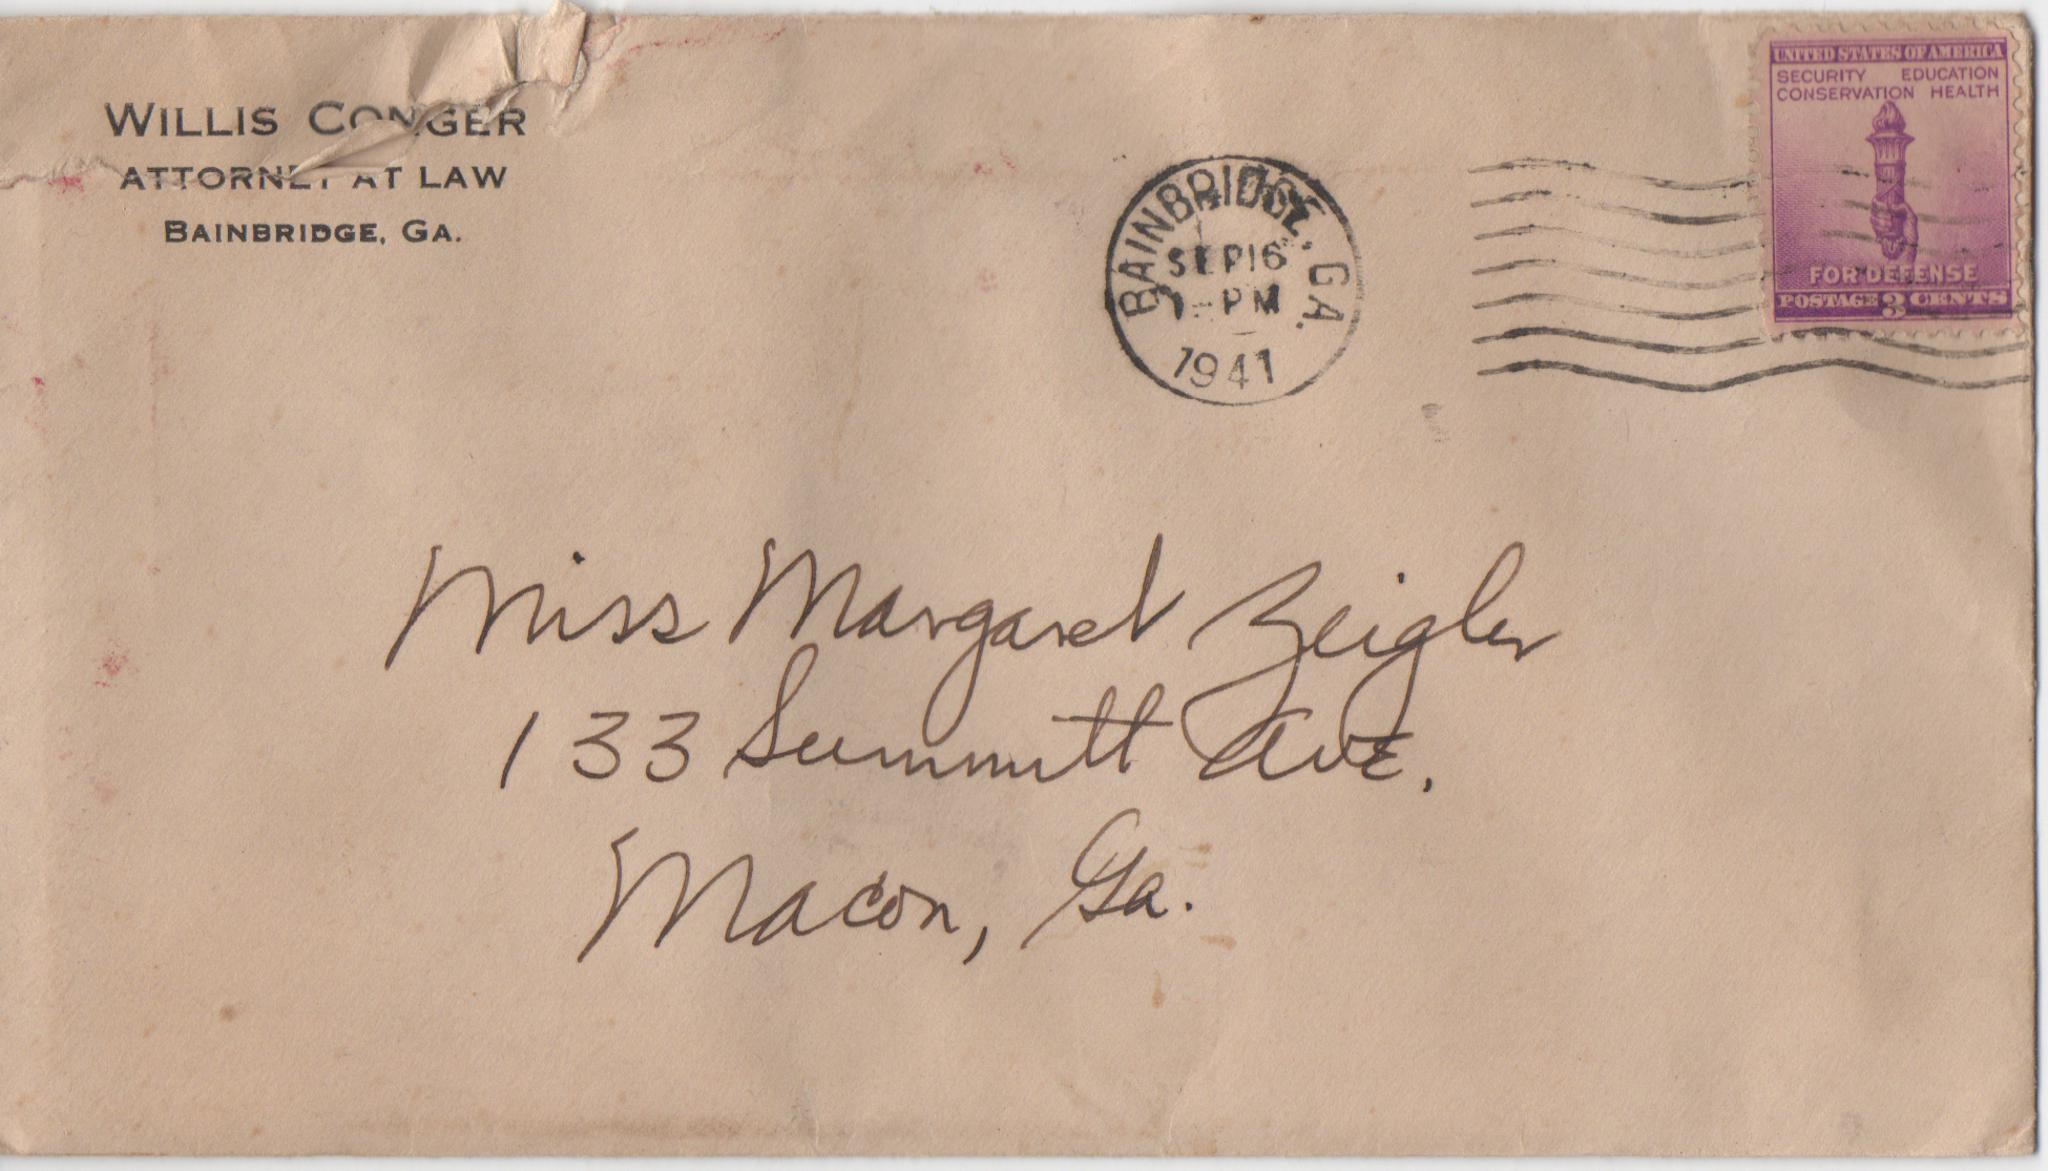 WILLIS CONGER
ATTORNEY AT LAW
BAINBRIDGE, GA.
BAINBRIDGE, GA.
SEP 16
1-PM
1941
UNITED STATES OF AMERICA
SECURITY EDUCATION
CONSERVATION HEALTH
FOR DEFENSE
POSTAGE 3 CENTS
Miss Margaret Zeigler
133 Summitt Ave.
Macon, Ga.